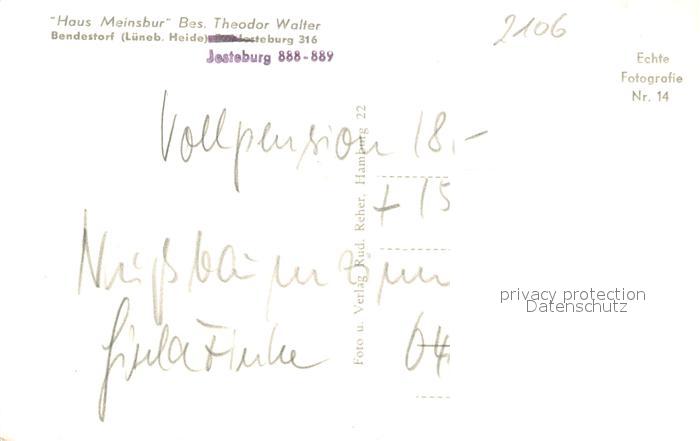 "Haus Meinsbur" Bes. Theodor Walter
Bendestorf (Lüneb. Heide) Jesteburg 316
Jesteburg 888-889
2106
Echte
Fotografie
Nr. 14
Vollpension 18.-
+ 15
Gisela
04
Foto u. Verlag Rud. Reher, Hamburg 22
privacy protection
Datenschutz